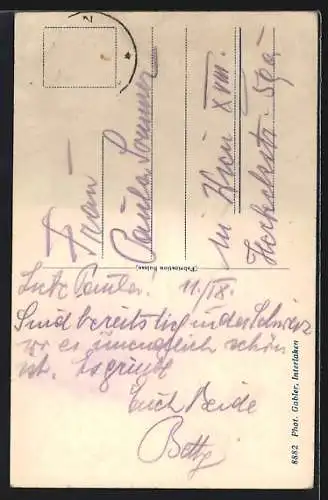 Frau
Paula Sommer
in Wien XVIII.
59a
(Fabrication Suisse.)
Liebe Paula! 11./IX.
Sind bereits in der Schweiz
wo es unendlich schön
ist. Es grüßt
Euch Beide
Betty
8882 Phot. Gabler, Interlaken